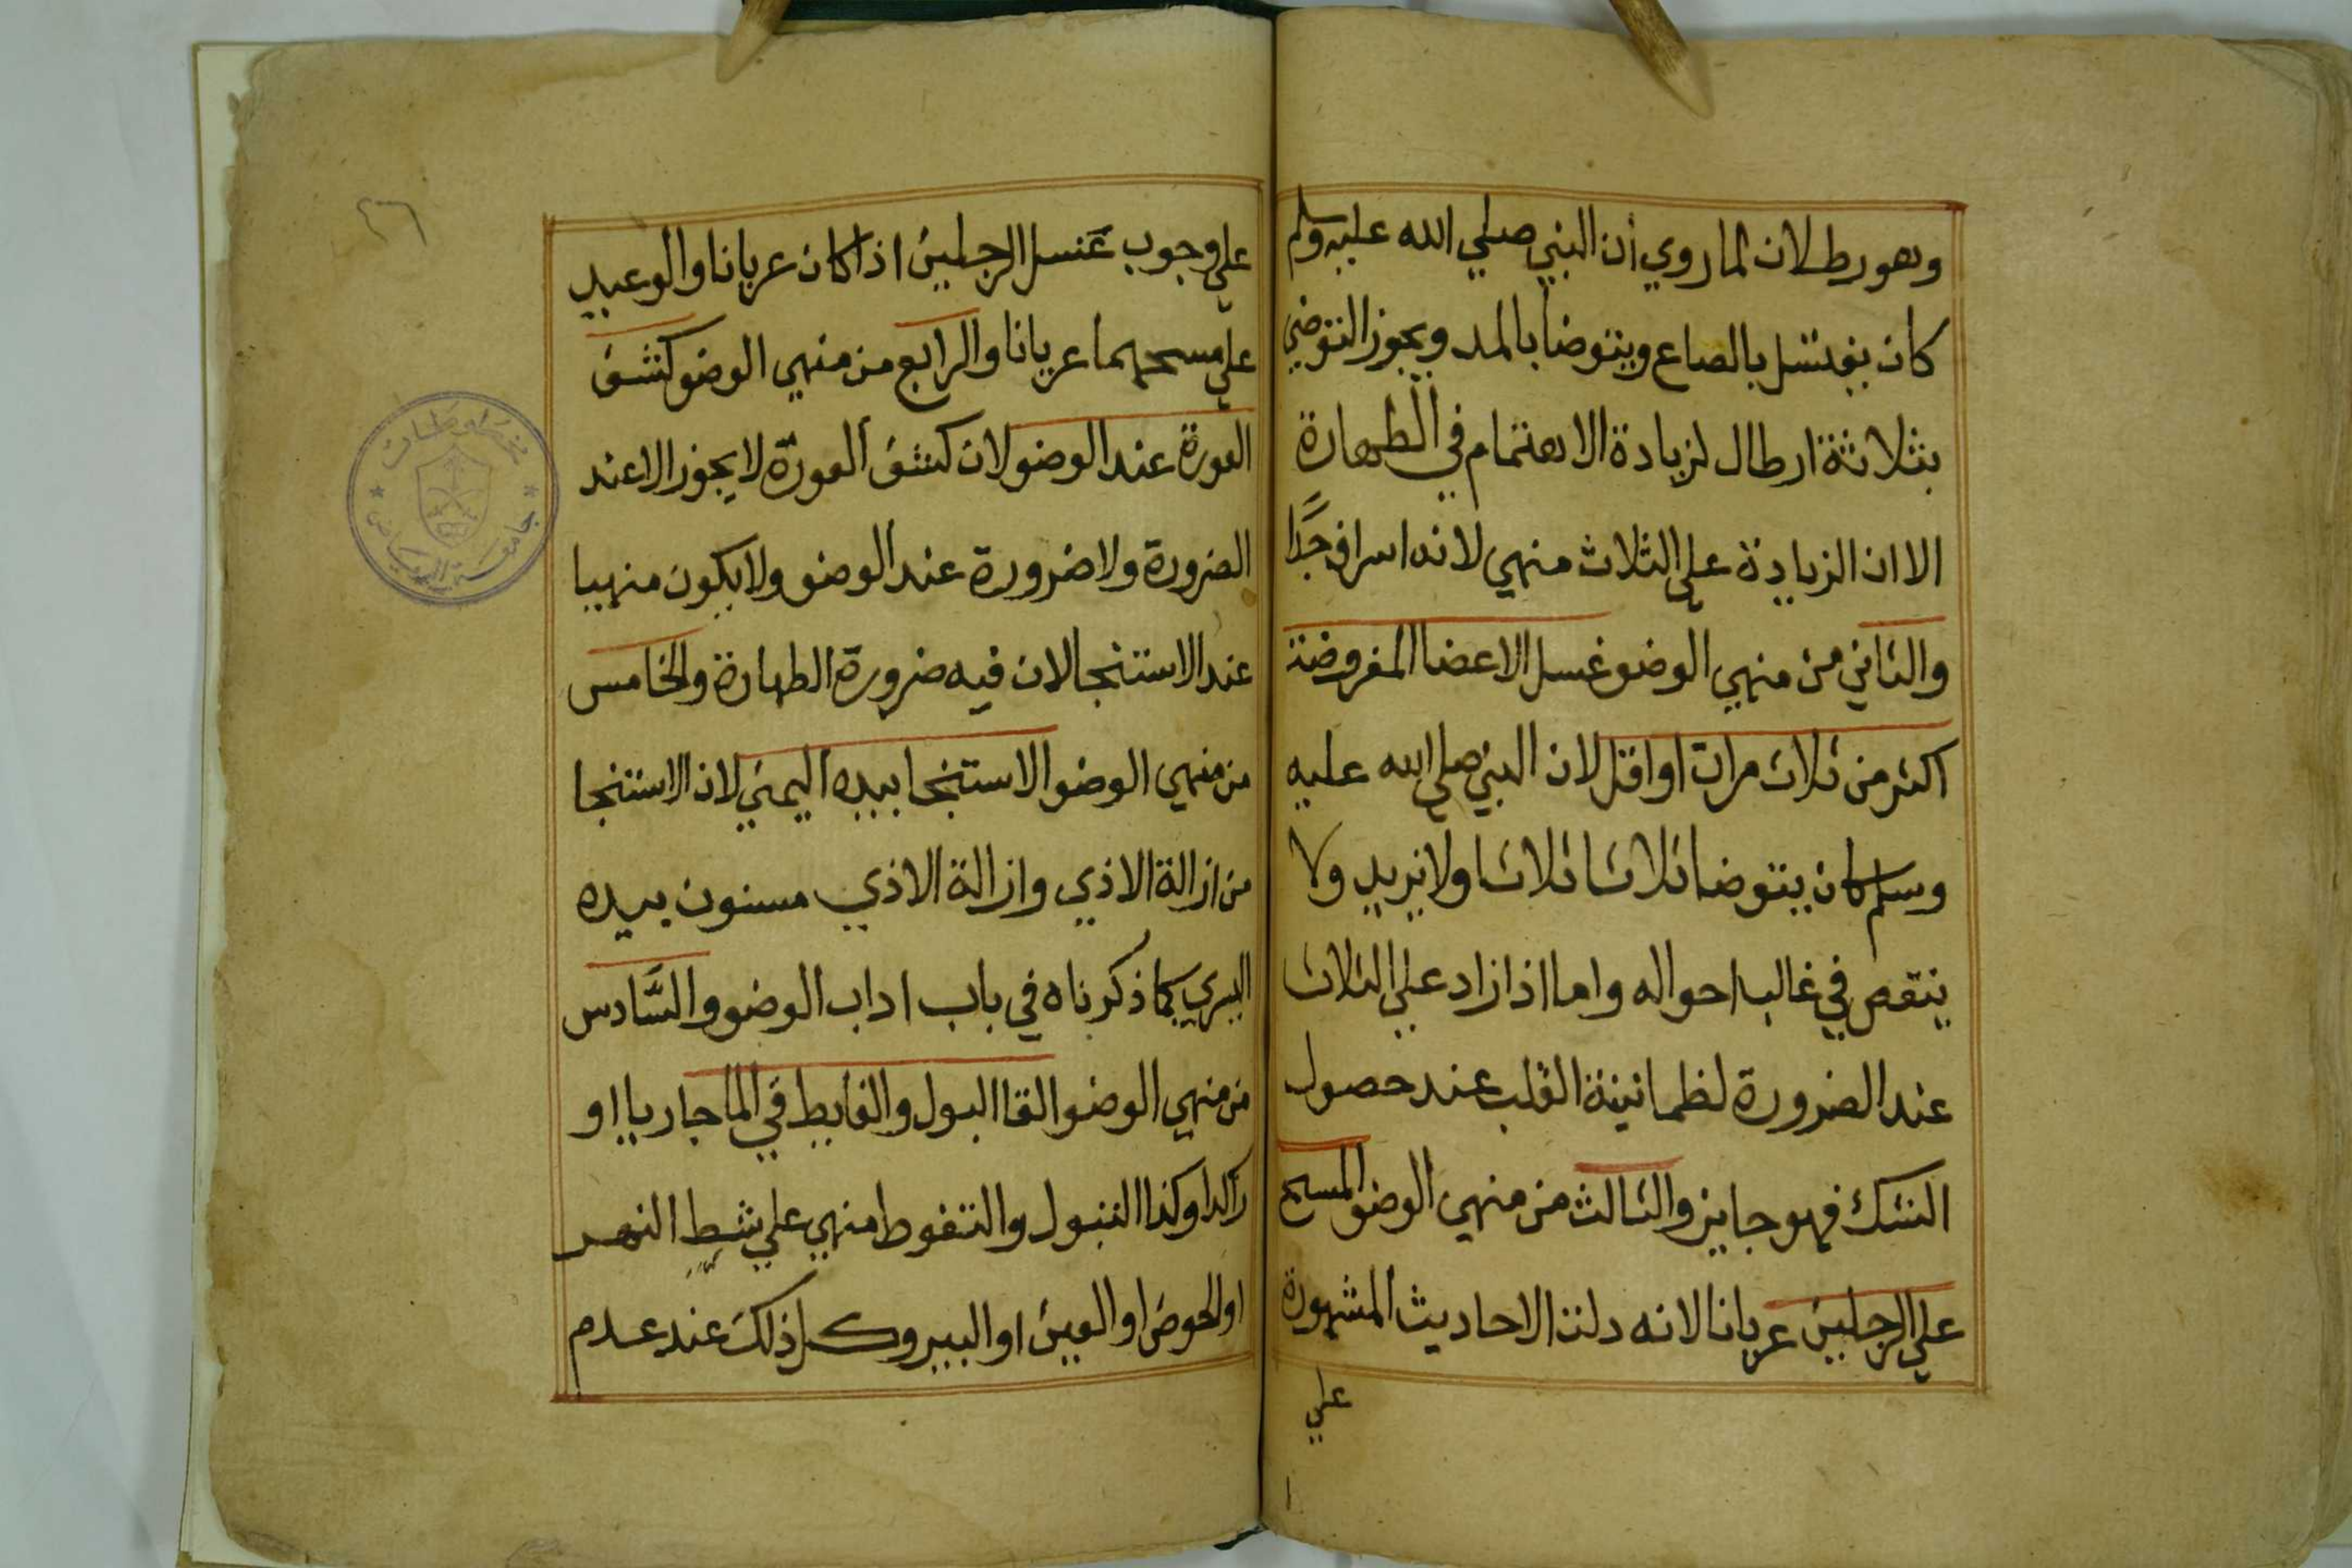 وهو رطلان لما روي أن النبي صلي الله عليه وسلم
كان يغتسل بالصاع ويتوضا بالمد ويجوز التوضي
بثلاثة ارطال لزيادة الاهتمام في الطهارة
الا ان الزيادة علي الثلاث منهي لانه اسراف جدًا
والثاني من منهي الوضو غسل الاعضا المفروضة
اكثر من ثلاث مرات او اقل لان النبي صلي الله عليه
وسلم كان يتوضا ثلاثا ثلاثا ولا يزيد ولا
ينقص في غالب احواله واما اذا زاد علي الثلاث
عند الضرورة لطمانينة القلب عند حصول
الشك فهو جايز والثالث من منهي الوضو المسح
علي الرجلين عريانا لانه دلت الاحاديث المشهورة
علي
٢٦
علي وجوب غسل الرجلين اذا كان عريانا والوعيد
علي مسحهما عريانا والرابع من منهي الوضو كشف
العورة عند الوضو لان كشف العورة لا يجوز الا عند
الضرورة ولا ضرورة عند الوضو ولا يكون منهيا
عند الاستنجا لان فيه ضرورة الطهارة والخامس
من منهي الوضو الاستنجا بيده اليمني لان الاستنجا
من ازالة الاذي وازالة الاذي مسنون بيده
اليسري كما ذكرناه في باب اداب الوضو والسَّادس
من منهي الوضو القا البول والغايط في الما جاريا او
راكدا وكذا التبول والتغوط منهي علي شط النهر
او الحوض او العين او البير وكل ذلك عند عدم
مخطوطات
جامعة الرياض